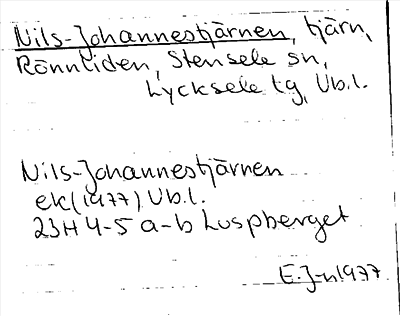 Nils-Johannestjärnen, tjärn,
Rönnliden, Stensele sn,
Lycksele tg, Vb.l.
Nils-Johannestjärnen
ek (1977) Vb.l.
23H 4-5 a-b Luspberget
E.J-n 1977